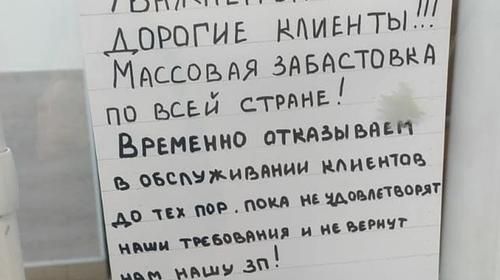 ДОРОГИЕ КЛИЕНТЫ!!!
МАССОВАЯ ЗАБАСТОВКА
ПО ВСЕЙ СТРАНЕ!
ВРЕМЕННО ОТКАЗЫВАЕМ
В ОБСЛУЖИВАНИИ КЛИЕНТОВ
ДО ТЕХ ПОР. ПОКА НЕ УДОВЛЕТВОРЯТ
НАШИ ТРЕБОВАНИЯ И НЕ ВЕРНУТ
НАМ НАШУ ЗП!